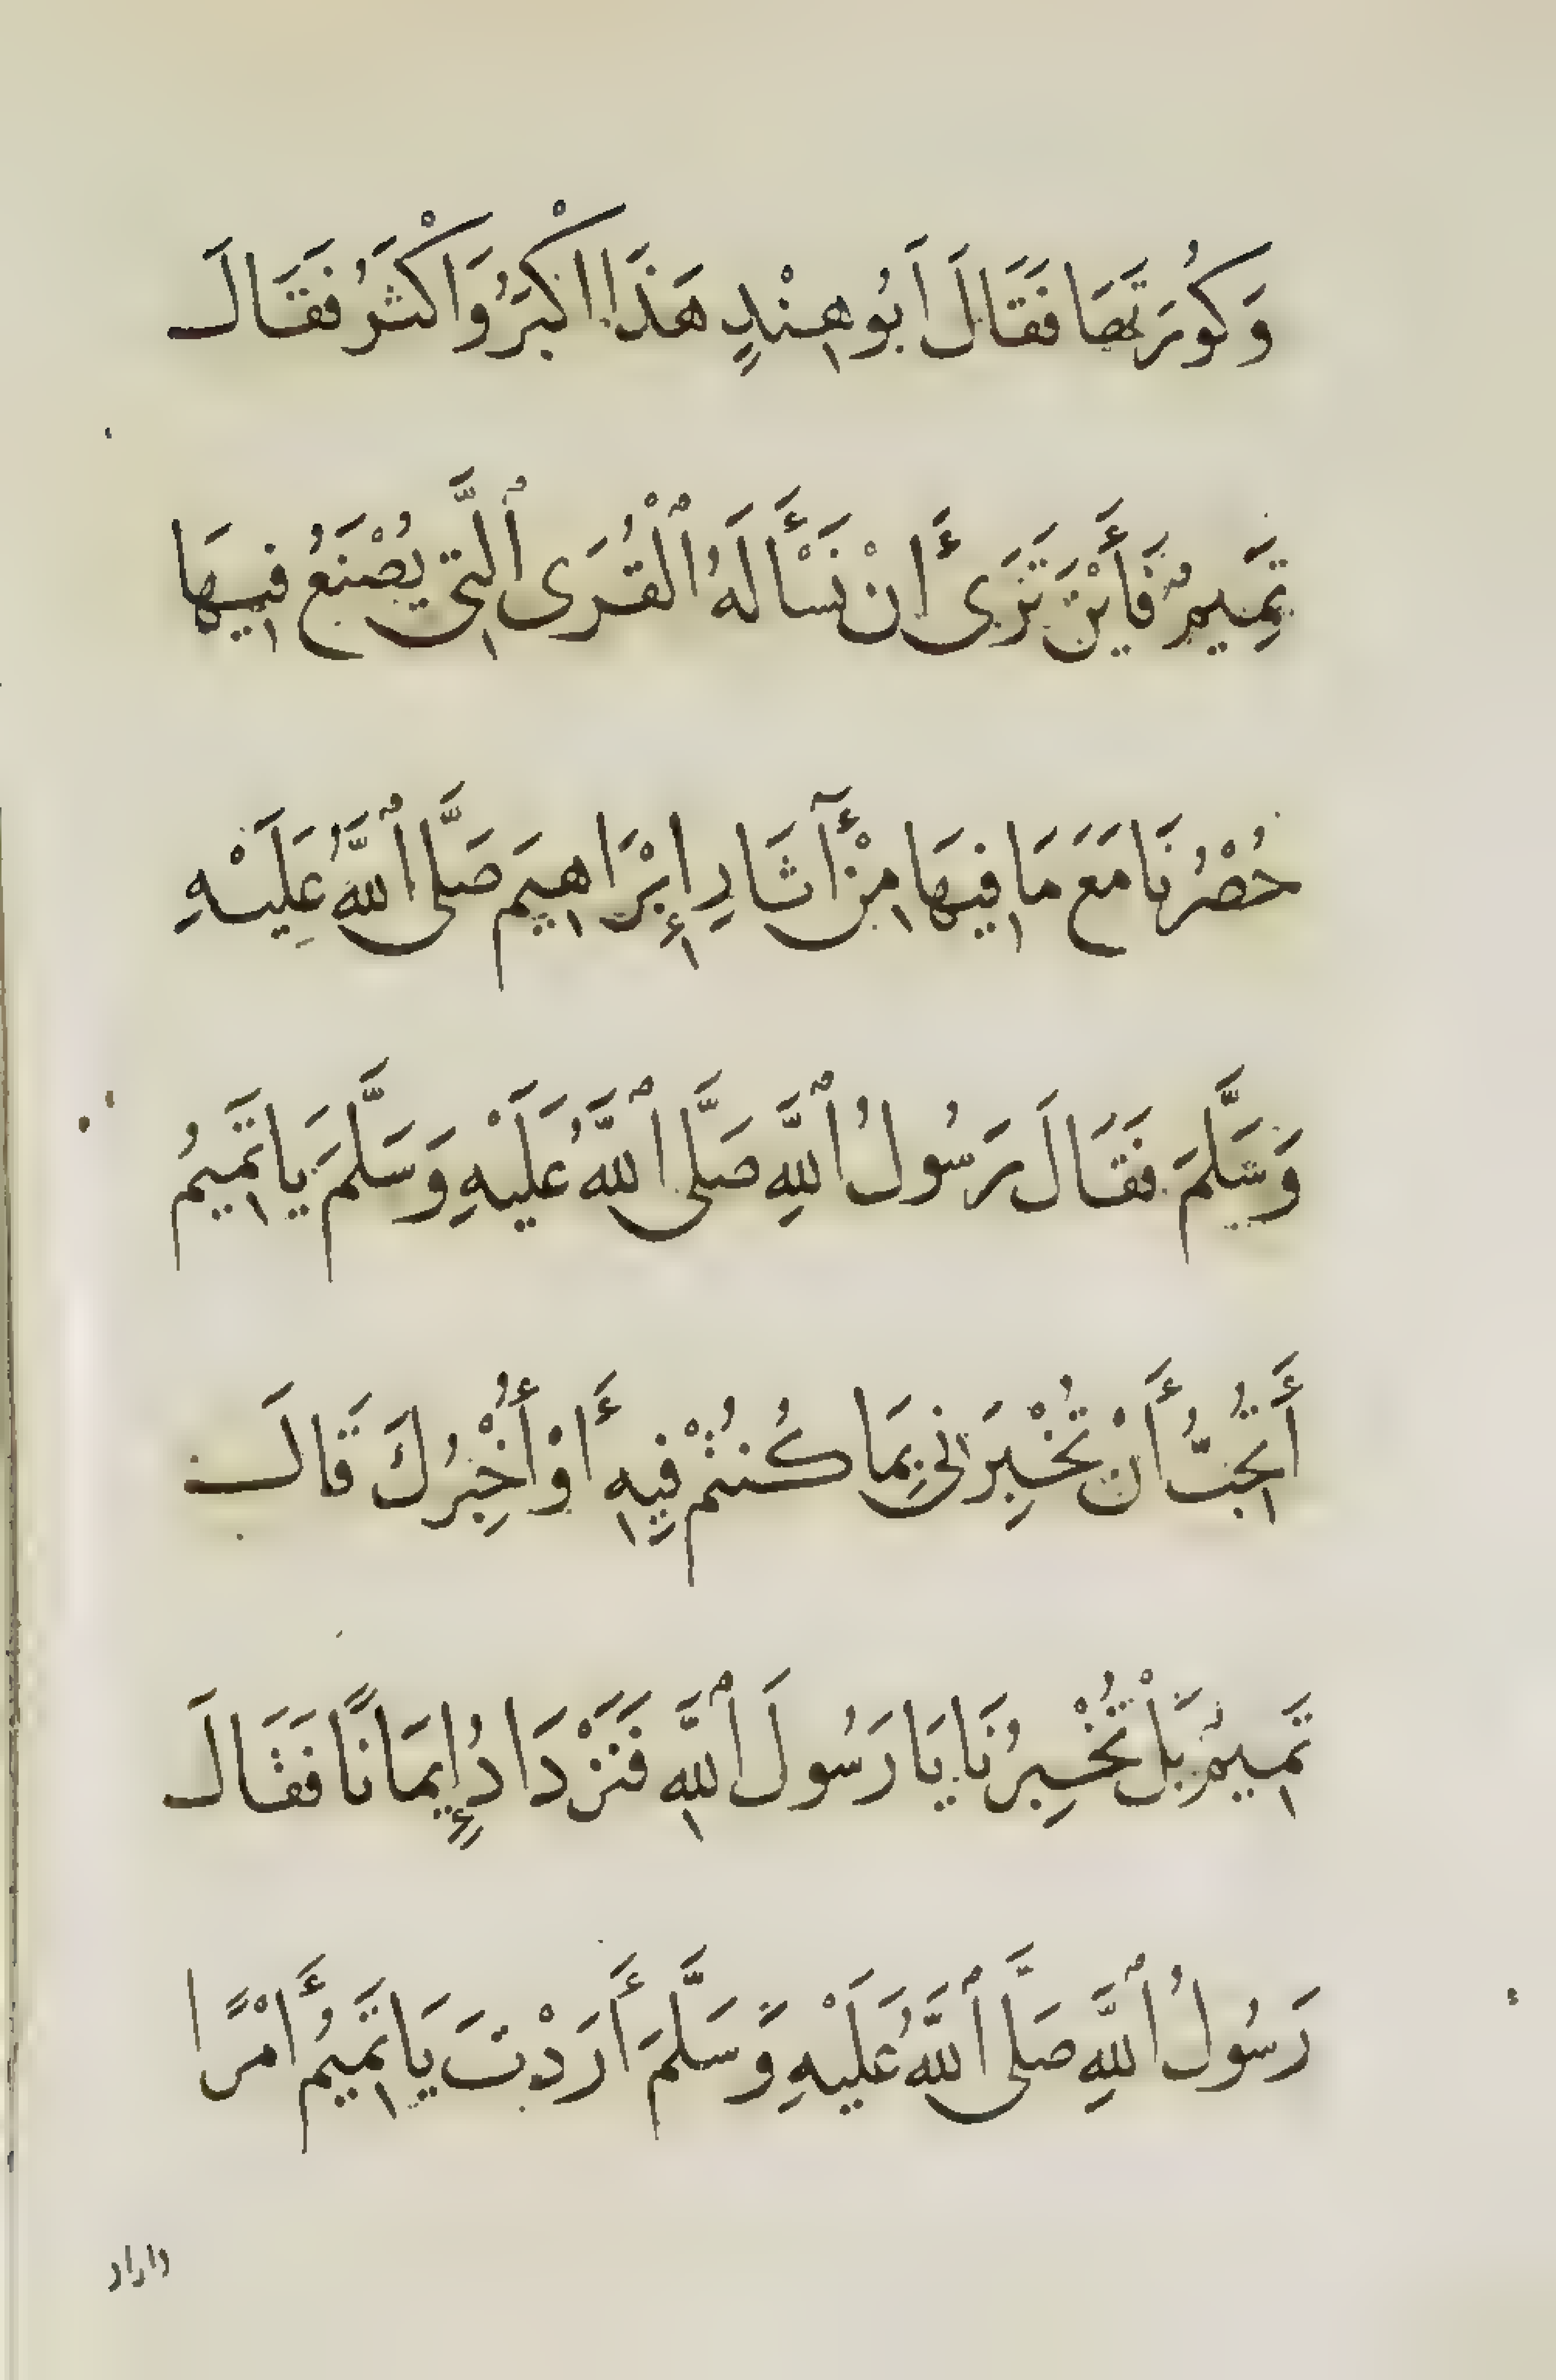 وَكُورَتَهَا فَقَالَ اَبُو هِنْدٍ هَذَا اكْبَرُ وَاكْثَرُ فَقَالَ
تَمِيمٌ فَأَيْنَ تَرَى أَنْ نَسْأَلَهُ ٱلْقُرَى ٱلَّتِى يُصْنَعُ فِيهَا
حُصْرُنَا مَعَ مَا فِيهَا مِنْ أٓثَارِ إِبْرَاهِيمَ صَلَّى ٱللَّهُ عَلَيْهِ
وَسَلَّمَ فَقَالَ رَسُولُ ٱللَّهِ صَلَّى ٱللَّهُ عَلَيْهِ وَسَلَّمَ يَا تَمِيمُ
أَتُحِبُّ أَنْ تُخْبِرَنِى بِمَا كُنْتُمْ فِيهِ أَوْ أُخْبِرُكَ قَالَ
تَمِيمٌ بَلْ تُخْبِرُنَا يَا رَسُولَ ٱللَّهِ فَنَزْدَادُ إِيمَانًا فَقَالَ
رَسُولُ ٱللَّهِ صَلَّى ٱللَّهُ عَلَيْهِ وَسَلَّمَ أَرَدْتَ يَا تَمِيمُ أَمْرًا